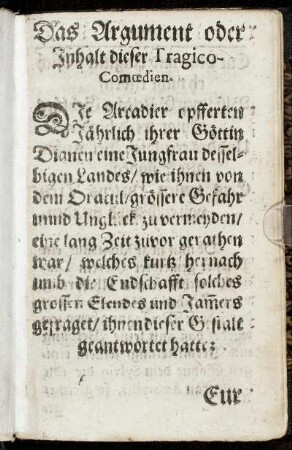 Das Argument oder
Inhalt dieser Tragico-
Comœdien.
DIe Arcadier opfferten
Jährlich ihrer Göttin
Dianen eine Jungfrau dessel-
bigen Landes/ wie ihnen von
dem Oracul/ grössere Gefahr
unnd Unglück zu vermeyden/
eine lang Zeit zuvor gerathen
war/ welches kurtz hernach
umb die Endschafft solches
grossen Elendes und Jam̃ers
gefraget/ ihnen dieser Gestalt
geantwortet hatte:
Eur